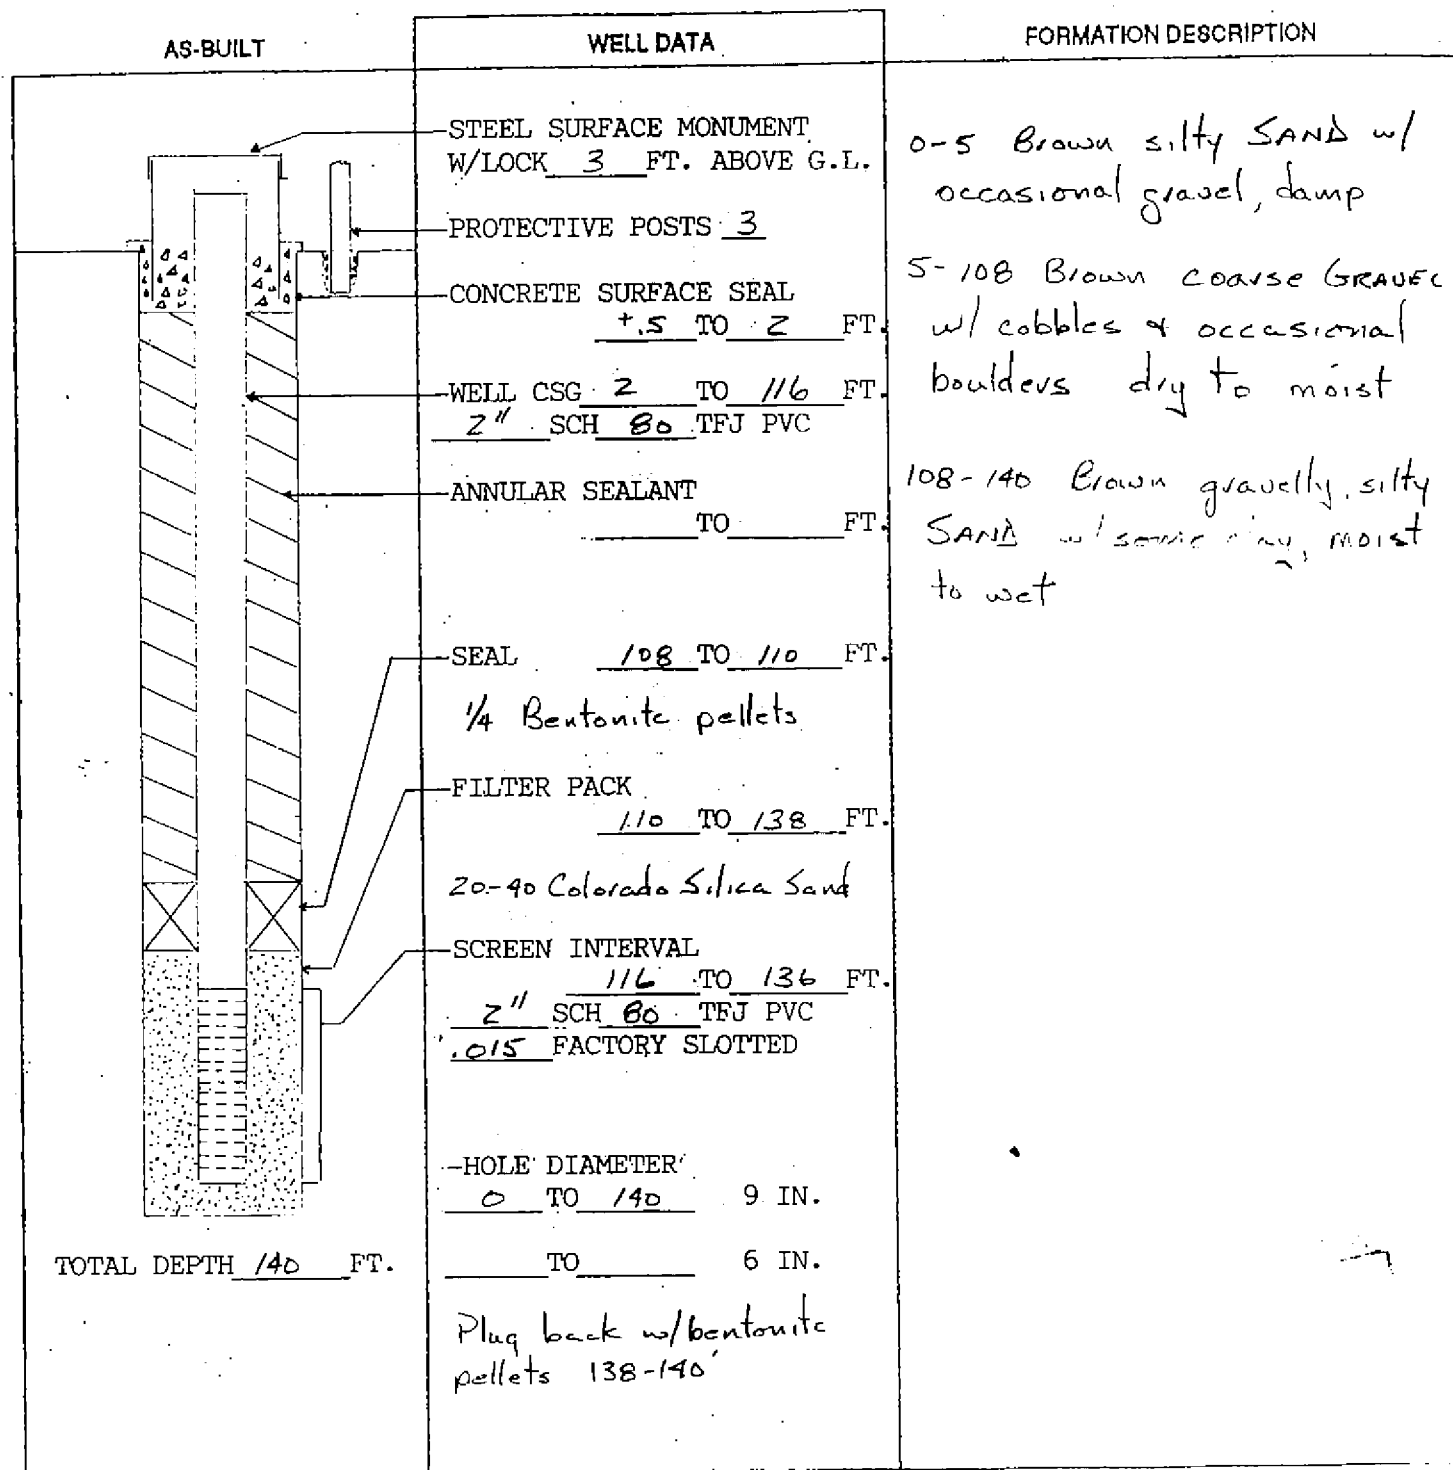 AS-BUILT
WELL DATA
FORMATION DESCRIPTION
STEEL SURFACE MONUMENT
W/LOCK 3 FT. ABOVE G.L.
PROTECTIVE POSTS 3
CONCRETE SURFACE SEAL
+.5 TO 2 FT.
WELL CSG 2 TO 116 FT.
2" SCH 80 TFJ PVC
ANNULAR SEALANT
TO FT.
SEAL 108 TO 110 FT.
1/4 Bentonite pellets
FILTER PACK
110 TO 138 FT.
20-40 Colorado Silica Sand
SCREEN INTERVAL
116 TO 136 FT.
2" SCH 80 TFJ PVC
.015 FACTORY SLOTTED
HOLE DIAMETER
0 TO 140 9 IN.
TO 6 IN.
Plug back w/bentonite
pellets 138-140'
TOTAL DEPTH 140 FT.
0-5 Brown silty SAND w/
occasional gravel, damp
5-108 Brown coarse GRAVEL
w/ cobbles & occasional
boulders dry to moist
108-140 Brown gravelly, silty
SAND w/ some clay, moist
to wet